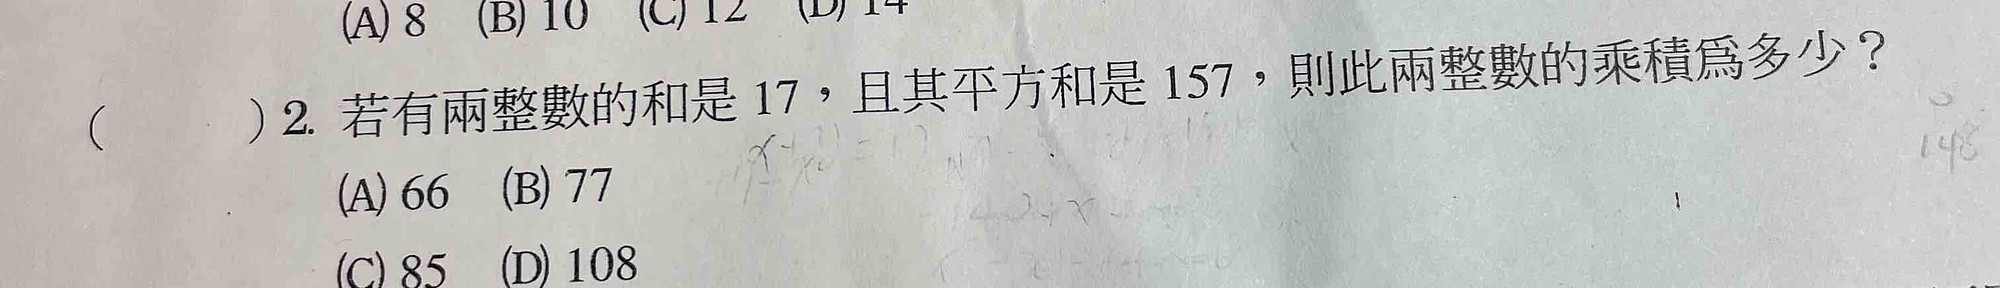 (A) 8 (B) 10 (C) 12 (D) 14
( ) 2. 若有兩整數的和是 17，且其平方和是 157，則此兩整數的乘積爲多少？
(A) 66 (B) 77
(C) 85 (D) 108